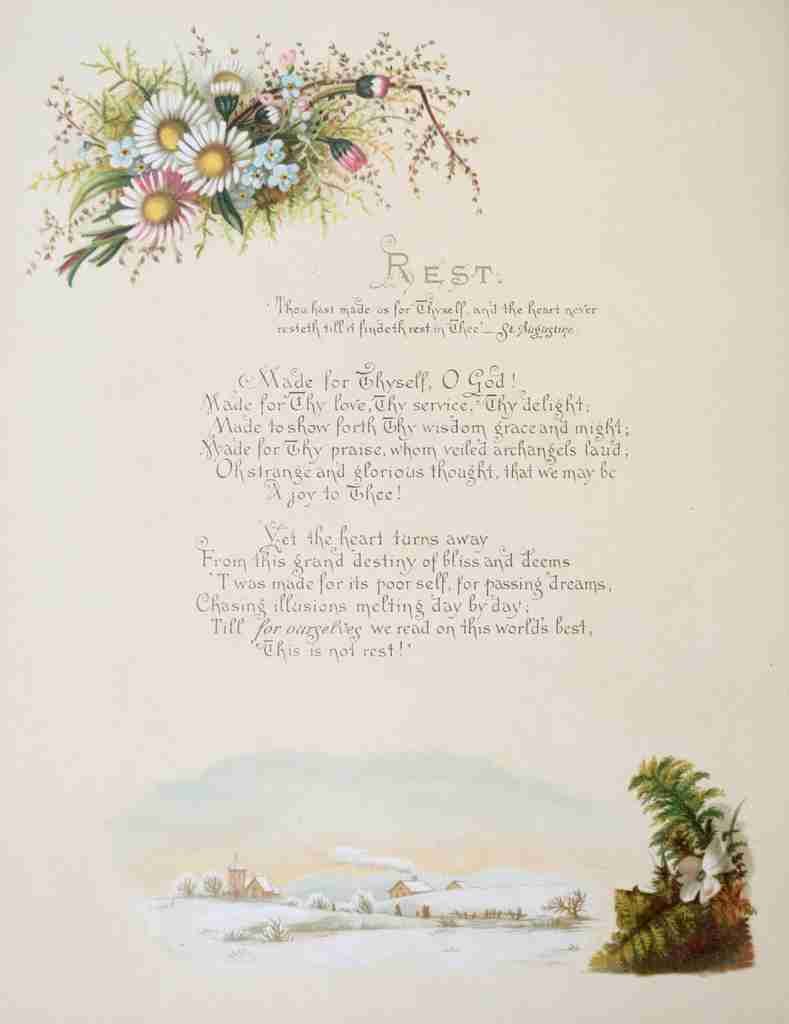 REST.
'Thou hast made us for Thyself, and the heart never
resteth till it findeth rest in Thee'— St. Augustine.
Made for Thyself, O God!
Made for Thy love, Thy service, Thy delight;
Made to show forth Thy wisdom grace and might;
Made for Thy praise, whom veiled archangels laud;
Oh strange and glorious thought, that we may be
A joy to Thee!
Yet the heart turns away
From this grand destiny of bliss and deems
'Twas made for its poor self, for passing dreams,
Chasing illusions melting day by day;
Till for ourselves we read on this world's best,
'This is not rest!'